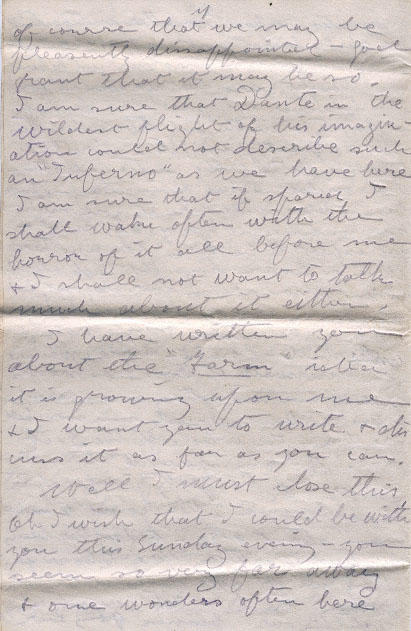 of course that we may be
pleasently dissappointed - god
grant that it may be so.
I am sure that Dante in the
wildest flight of his imagin-
ation could not describe such
an "Inferno" as we have here
I am sure that if spared I
shall wake often with the
horror of it all before me
& I shall not want to talk
much about it either.
I have written you
about the "Farm" idea
it is growing upon me
& I want you to write & dis
cuss it as far as you can.
Well I must close this
Oh I wish that I could be with
you this Sunday evening - you
seem so very far away
& one wonders often here